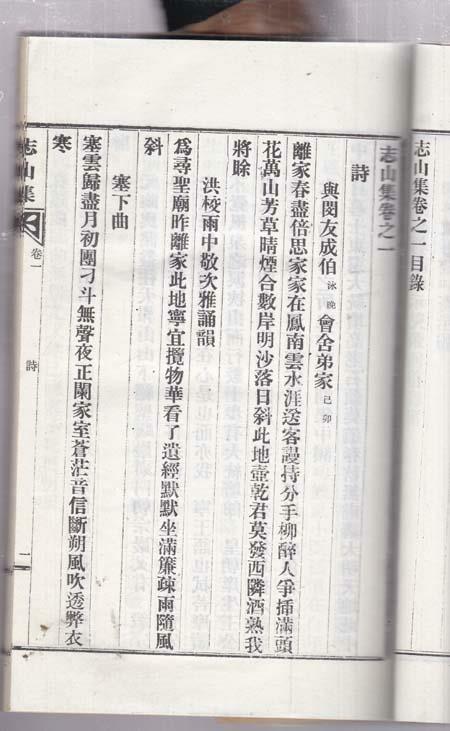 志山集卷之一目錄
志山集卷之一
詩
與閔友成伯泳晚會舍弟家己卯
離家春盡倍思家家在鳳南雲水涯送客謾持分手柳醉人爭揷滿頭
花萬山芳草晴煙合數岸明沙落日斜此地壺乾君莫發西隣酒熟我
將賖
洪校雨中敬次雅誦韻
爲尋聖廟昨離家此地寧宜攬物華看了遺經默默坐滿簾疎雨隨風
斜
塞下曲
塞雲歸盡月初團刁斗無聲夜正闌家室蒼茫音信斷朔風吹透弊衣
寒
志山集
卷一
詩
一